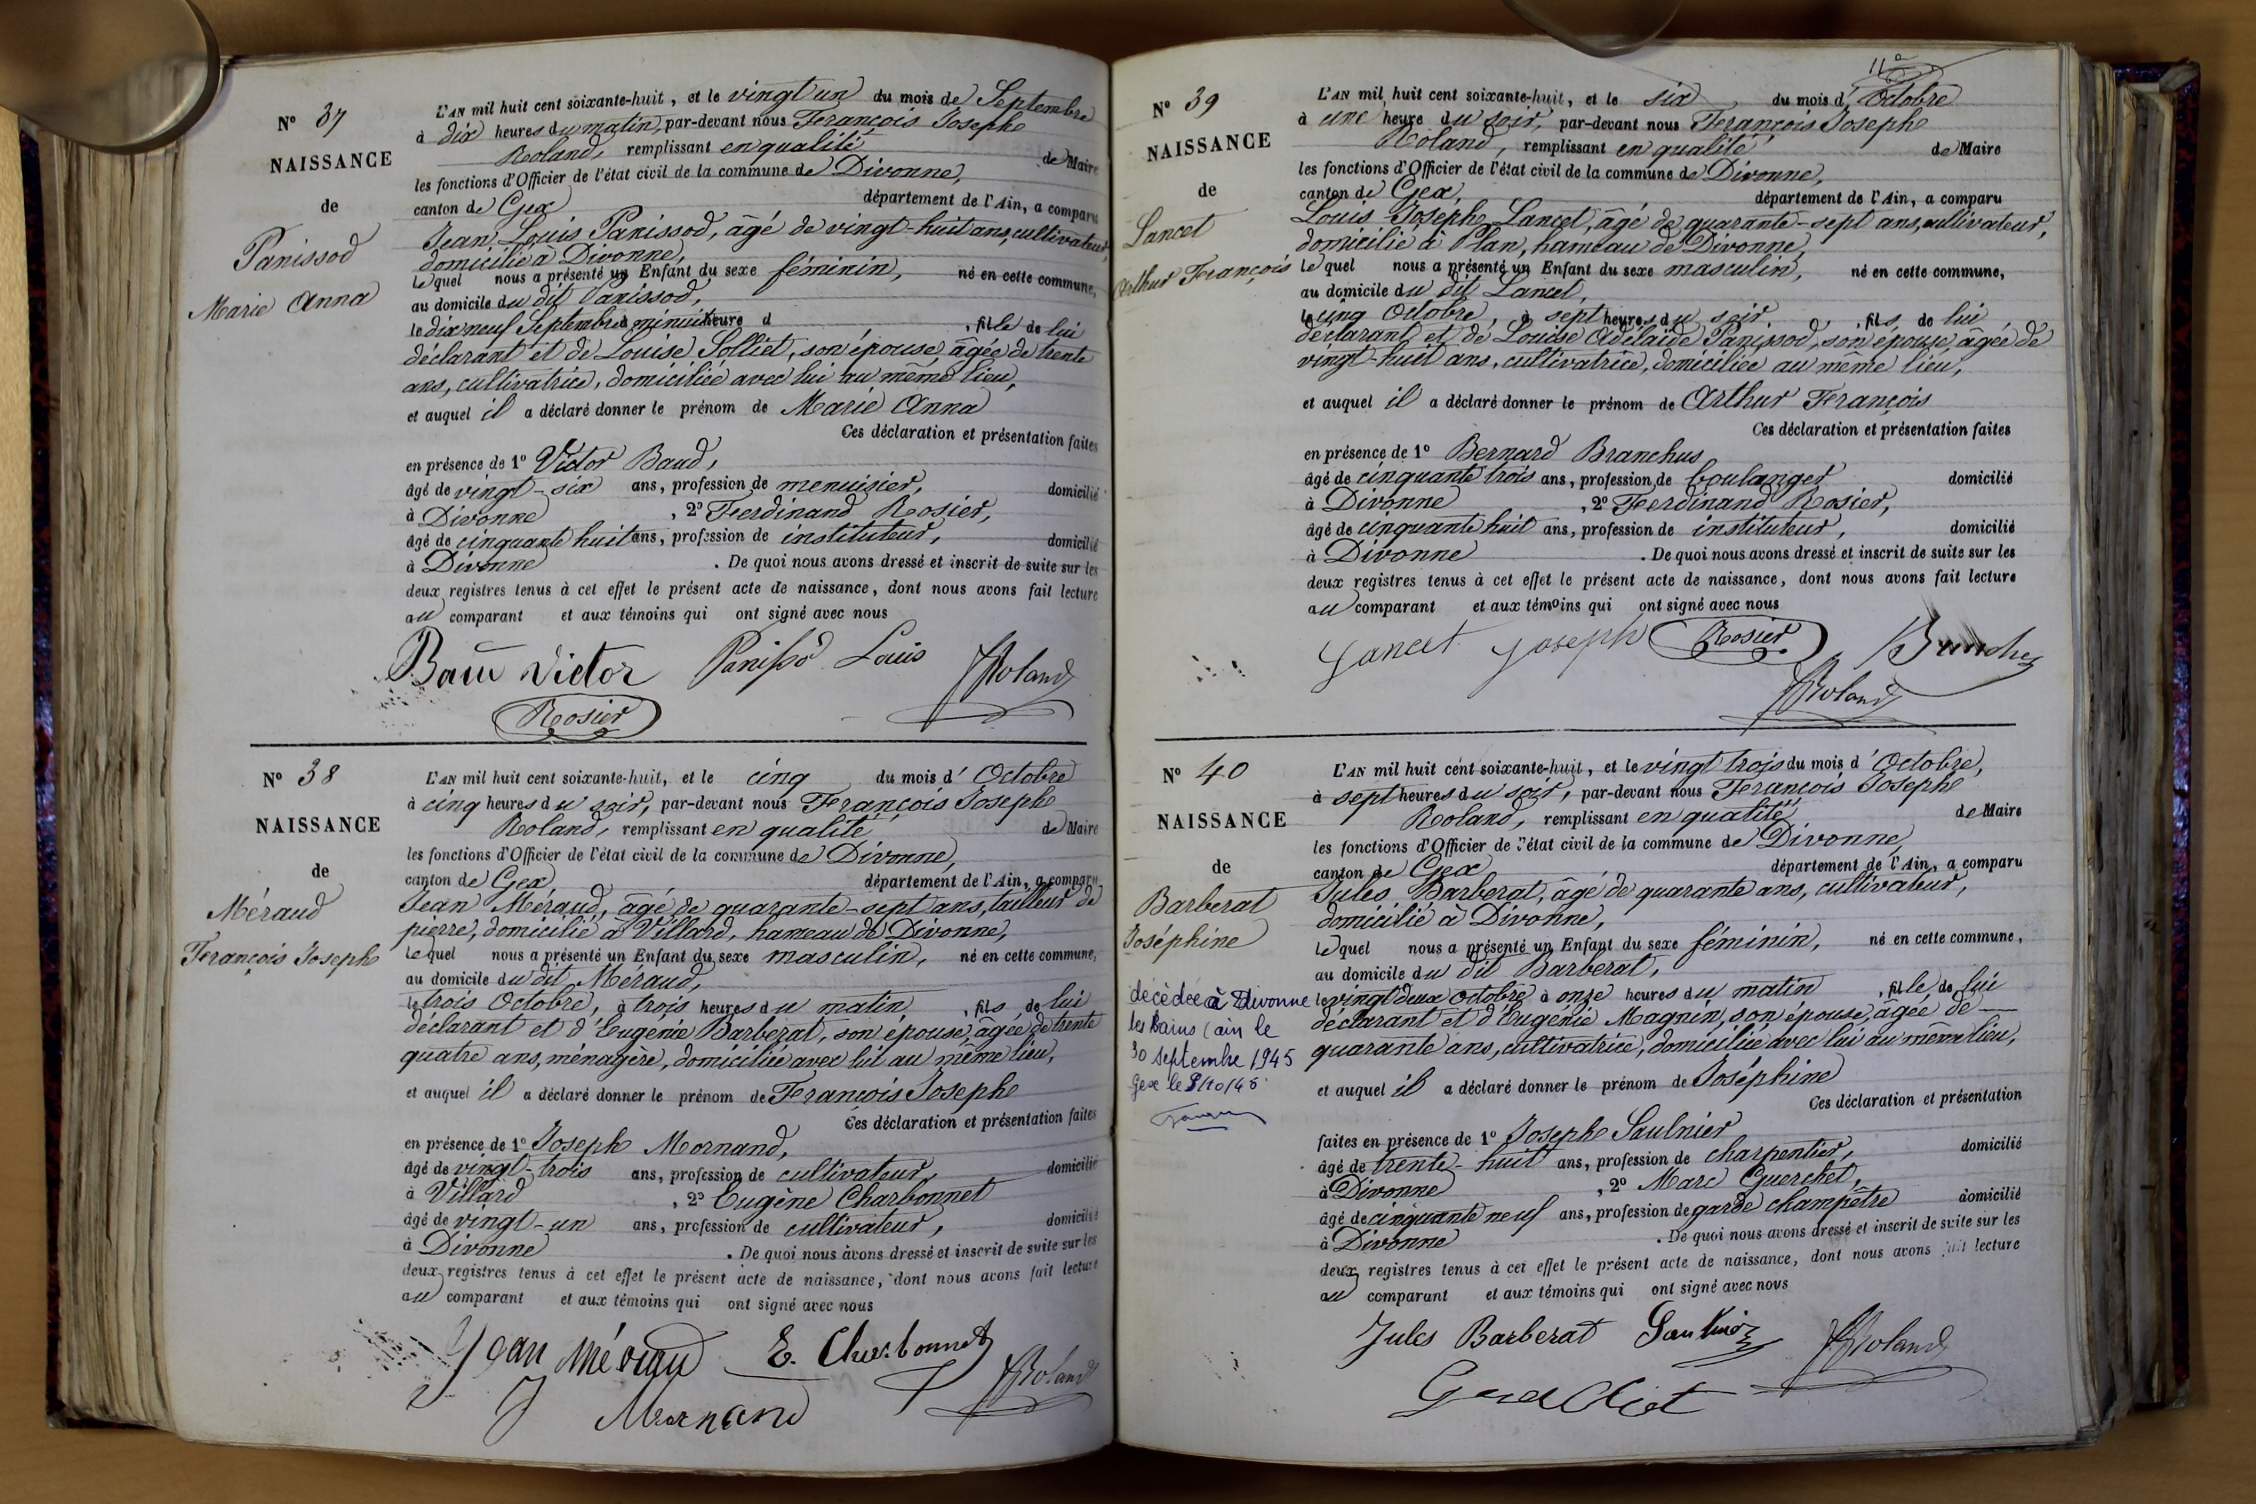 N° 37
NAISSANCE
de
Panissod
Marie Anna
L'AN mil huit cent soixante-huit, et le vingt un du mois de Septembre
à dix heures du matin, par-devant nous François Josephe
Roland, remplissant en qualité de Maire
les fonctions d'Officier de l'état civil de la commune de Divonne,
canton de Gex département de l'Ain, a comparu
Jean Louis Panissod, âgé de vingt-huit ans, cultivateur,
domicilié à Divonne,
lequel nous a présenté un Enfant du sexe féminin, né en cette commune,
au domicile du dit Panissod,
le dix neuf Septembre à minuit heure d , fille de lui
déclarant et de Louise Solliet, son épouse, âgée de trente
ans, cultivatrice, domiciliée avec lui au même lieu,
et auquel il a déclaré donner le prénom de Marie Anna
Ces déclaration et présentation faites
en présence de 1° Victor Baud,
âgé de vingt-six ans, profession de menuisier, domicilié
à Divonne , 2° Ferdinand Rosier,
âgé de cinquante huit ans, profession de instituteur, domicilié
à Divonne . De quoi nous avons dressé et inscrit de suite sur les
deux registres tenus à cet effet le présent acte de naissance, dont nous avons fait lecture
au comparant et aux témoins qui ont signé avec nous
Baud Victor Panissod Louis FRoland
Rosier
N° 38
NAISSANCE
de
Méraud
François Josephe
L'AN mil huit cent soixante-huit, et le cinq du mois d' Octobre
à cinq heures du soir, par-devant nous François Josephe
Roland, remplissant en qualité de Maire
les fonctions d'Officier de l'état civil de la commune de Divonne,
canton de Gex département de l'Ain, a comparu
Jean Méraud, âgé de quarante-sept ans, tailleur de
pierre, domicilié à Villard, hameau de Divonne,
lequel nous a présenté un Enfant du sexe masculin, né en cette commune,
au domicile du dit Méraud,
le trois Octobre, à trois heures du matin , fils de lui
déclarant et d'Eugenie Barberat, son épouse, âgée de trente
quatre ans, ménagère, domiciliée avec lui au même lieu,
et auquel il a déclaré donner le prénom de François Josephe
Ces déclaration et présentation faites
en présence de 1° Joseph Mornand,
âgé de vingt-trois ans, profession de cultivateur, domicilié
à Villard , 2° Eugène Charbonnet
âgé de vingt-un ans, profession de cultivateur, domicilié
à Divonne . De quoi nous avons dressé et inscrit de suite sur les
deux registres tenus à cet effet le présent acte de naissance, dont nous avons fait lecture
au comparant et aux témoins qui ont signé avec nous
Jean Méraud E. Charbonnet
J Mornand FRoland
11e
N° 39
NAISSANCE
de
Lancet
Arthur François
L'AN mil huit cent soixante-huit, et le six du mois d' Octobre
à une heure du soir, par-devant nous François Josephe
Roland, remplissant en qualité de Maire
les fonctions d'Officier de l'état civil de la commune de Divonne,
canton de Gex, département de l'Ain, a comparu
Louis Josephe Lancet, âgé de quarante-sept ans, cultivateur,
domicilié à Plan, hameau de Divonne,
lequel nous a présenté un Enfant du sexe masculin, né en cette commune,
au domicile du dit Lancet,
le cinq Octobre, à sept heures du soir , fils de lui
déclarant et de Louise Adélaïde Panissod, son épouse, âgée de
vingt-huit ans, cultivatrice, domiciliée au même lieu,
et auquel il a déclaré donner le prénom de Arthur François
Ces déclaration et présentation faites
en présence de 1° Bernard Branchus
âgé de cinquante trois ans, profession de boulanger domicilié
à Divonne , 2° Ferdinand Rosier,
âgé de cinquante huit ans, profession de instituteur, domicilié
à Divonne . De quoi nous avons dressé et inscrit de suite sur les
deux registres tenus à cet effet le présent acte de naissance, dont nous avons fait lecture
au comparant et aux témoins qui ont signé avec nous
Lancet Joseph Rosier
FRoland
N° 40
NAISSANCE
de
Barberat
Joséphine
décédée à Divonne
les Bains (ain le
30 septembre 1945
Gex le 8/10/45
L'AN mil huit cent soixante-huit, et le vingt trois du mois d' Octobre,
à sept heures du soir, par-devant nous François Josephe
Roland, remplissant en qualité de Maire
les fonctions d'Officier de l'état civil de la commune de Divonne,
canton de Gex département de l'Ain, a comparu
Jules Barberat, âgé de quarante ans, cultivateur,
domicilié à Divonne,
lequel nous a présenté un Enfant du sexe féminin, né en cette commune,
au domicile du dit Barberat,
le vingt deux octobre à onze heures du matin , fille de lui
déclarant et d'Eugénie Magnin, son épouse, âgée de
quarante ans, cultivatrice, domiciliée avec lui au même lieu,
et auquel il a déclaré donner le prénom de Joséphine
Ces déclaration et présentation
faites en présence de 1° Josephe Saulnier
âgé de trente-huit ans, profession de charpentier, domicilié
à Divonne , 2° Marc Guerchet,
âgé de cinquante neuf ans, profession de garde champêtre domicilié
à Divonne . De quoi nous avons dressé et inscrit de suite sur les
deux registres tenus à cet effet le présent acte de naissance, dont nous avons fait lecture
au comparant et aux témoins qui ont signé avec nous
Jules Barberat Saulnier FRoland